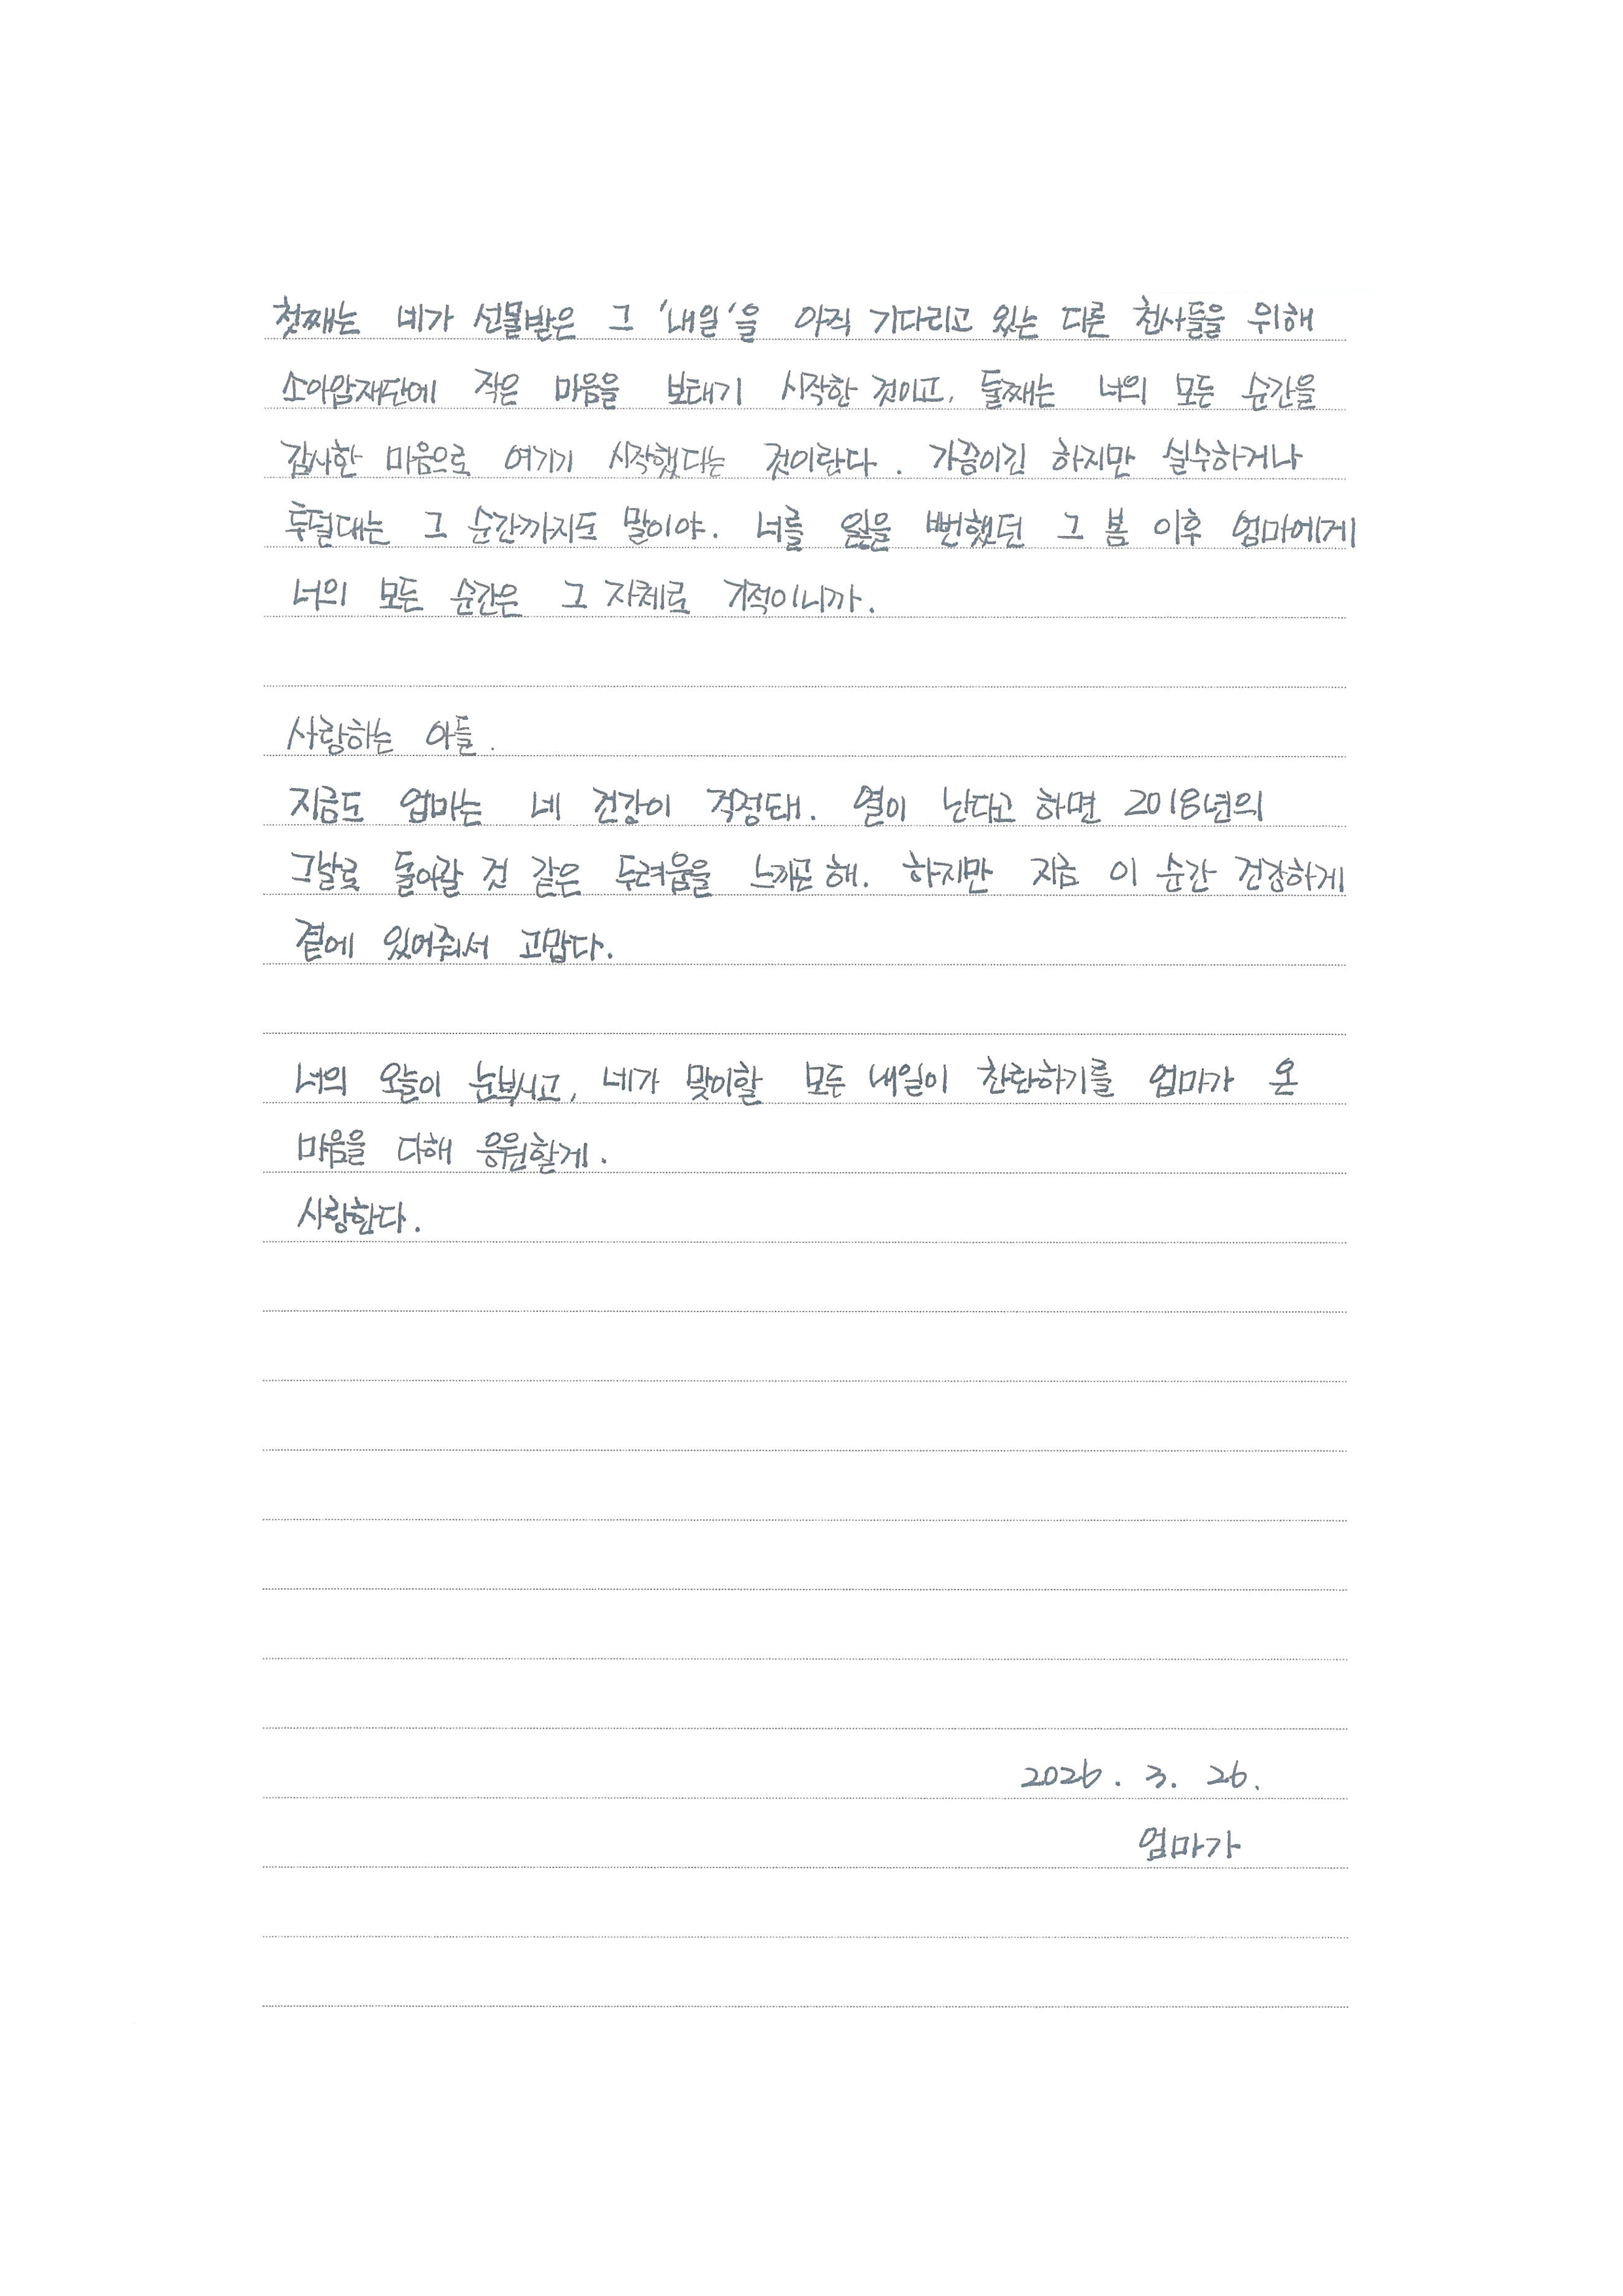 첫째는 네가 선물받은 그 '내일'을 아직 기다리고 있는 다른 천사들을 위해
소아암재단에 작은 마음을 보태기 시작한 것이고, 둘째는 너의 모든 순간을
감사한 마음으로 여기기 시작했다는 것이란다. 가끔이긴 하지만 실수하거나
투덜대는 그 순간까지도 말이야. 너를 잃을 뻔했던 그 봄 이후 엄마에게
너의 모든 순간은 그 자체로 기적이니까.
사랑하는 아들.
지금도 엄마는 네 건강이 걱정돼. 열이 난다고 하면 2018년의
그날로 돌아갈 것 같은 두려움을 느끼곤 해. 하지만 지금 이 순간 건강하게
곁에 있어줘서 고맙다.
너의 오늘이 눈부시고, 네가 맞이할 모든 내일이 찬란하기를 엄마가 온
마음을 다해 응원할게.
사랑한다.
2026. 3. 26.
엄마가